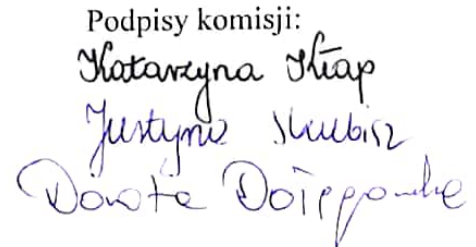 Podpisy komisji:
Katarzyna Kłap
Justyna Skubisz
Dorota